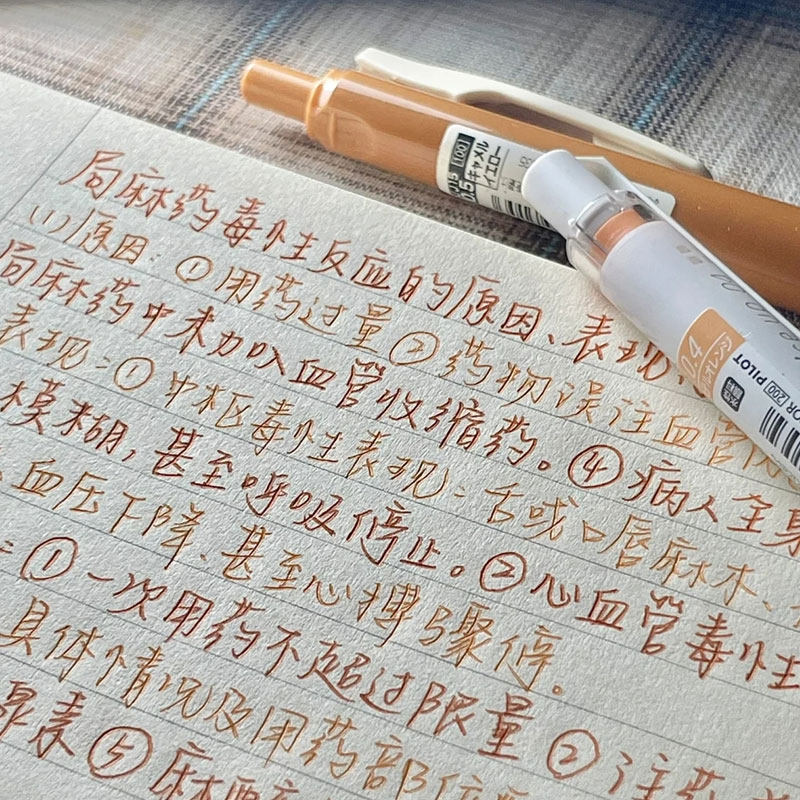 局麻药毒性反应的原因、表现、
(1)原因：①用药过量②药物误注血管内
局麻药中未加入血管收缩药。④病人全身
表现：①中枢毒性表现：舌或口唇麻木、
模糊，甚至呼吸停止。②心血管毒性
、血压下降、甚至心搏骤停。
：①一次用药不超过限量②注药
具体情况及用药部位
肾素⑤麻醉
[100]
0.5 キャメル
イエロー
0.4
オレンジ
OR 200 PILOT